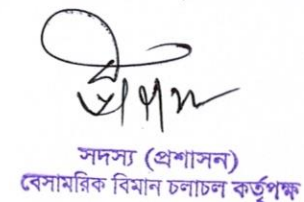 সদস্য (প্রশাসন)
বেসামরিক বিমান চলাচল কর্তৃপক্ষ